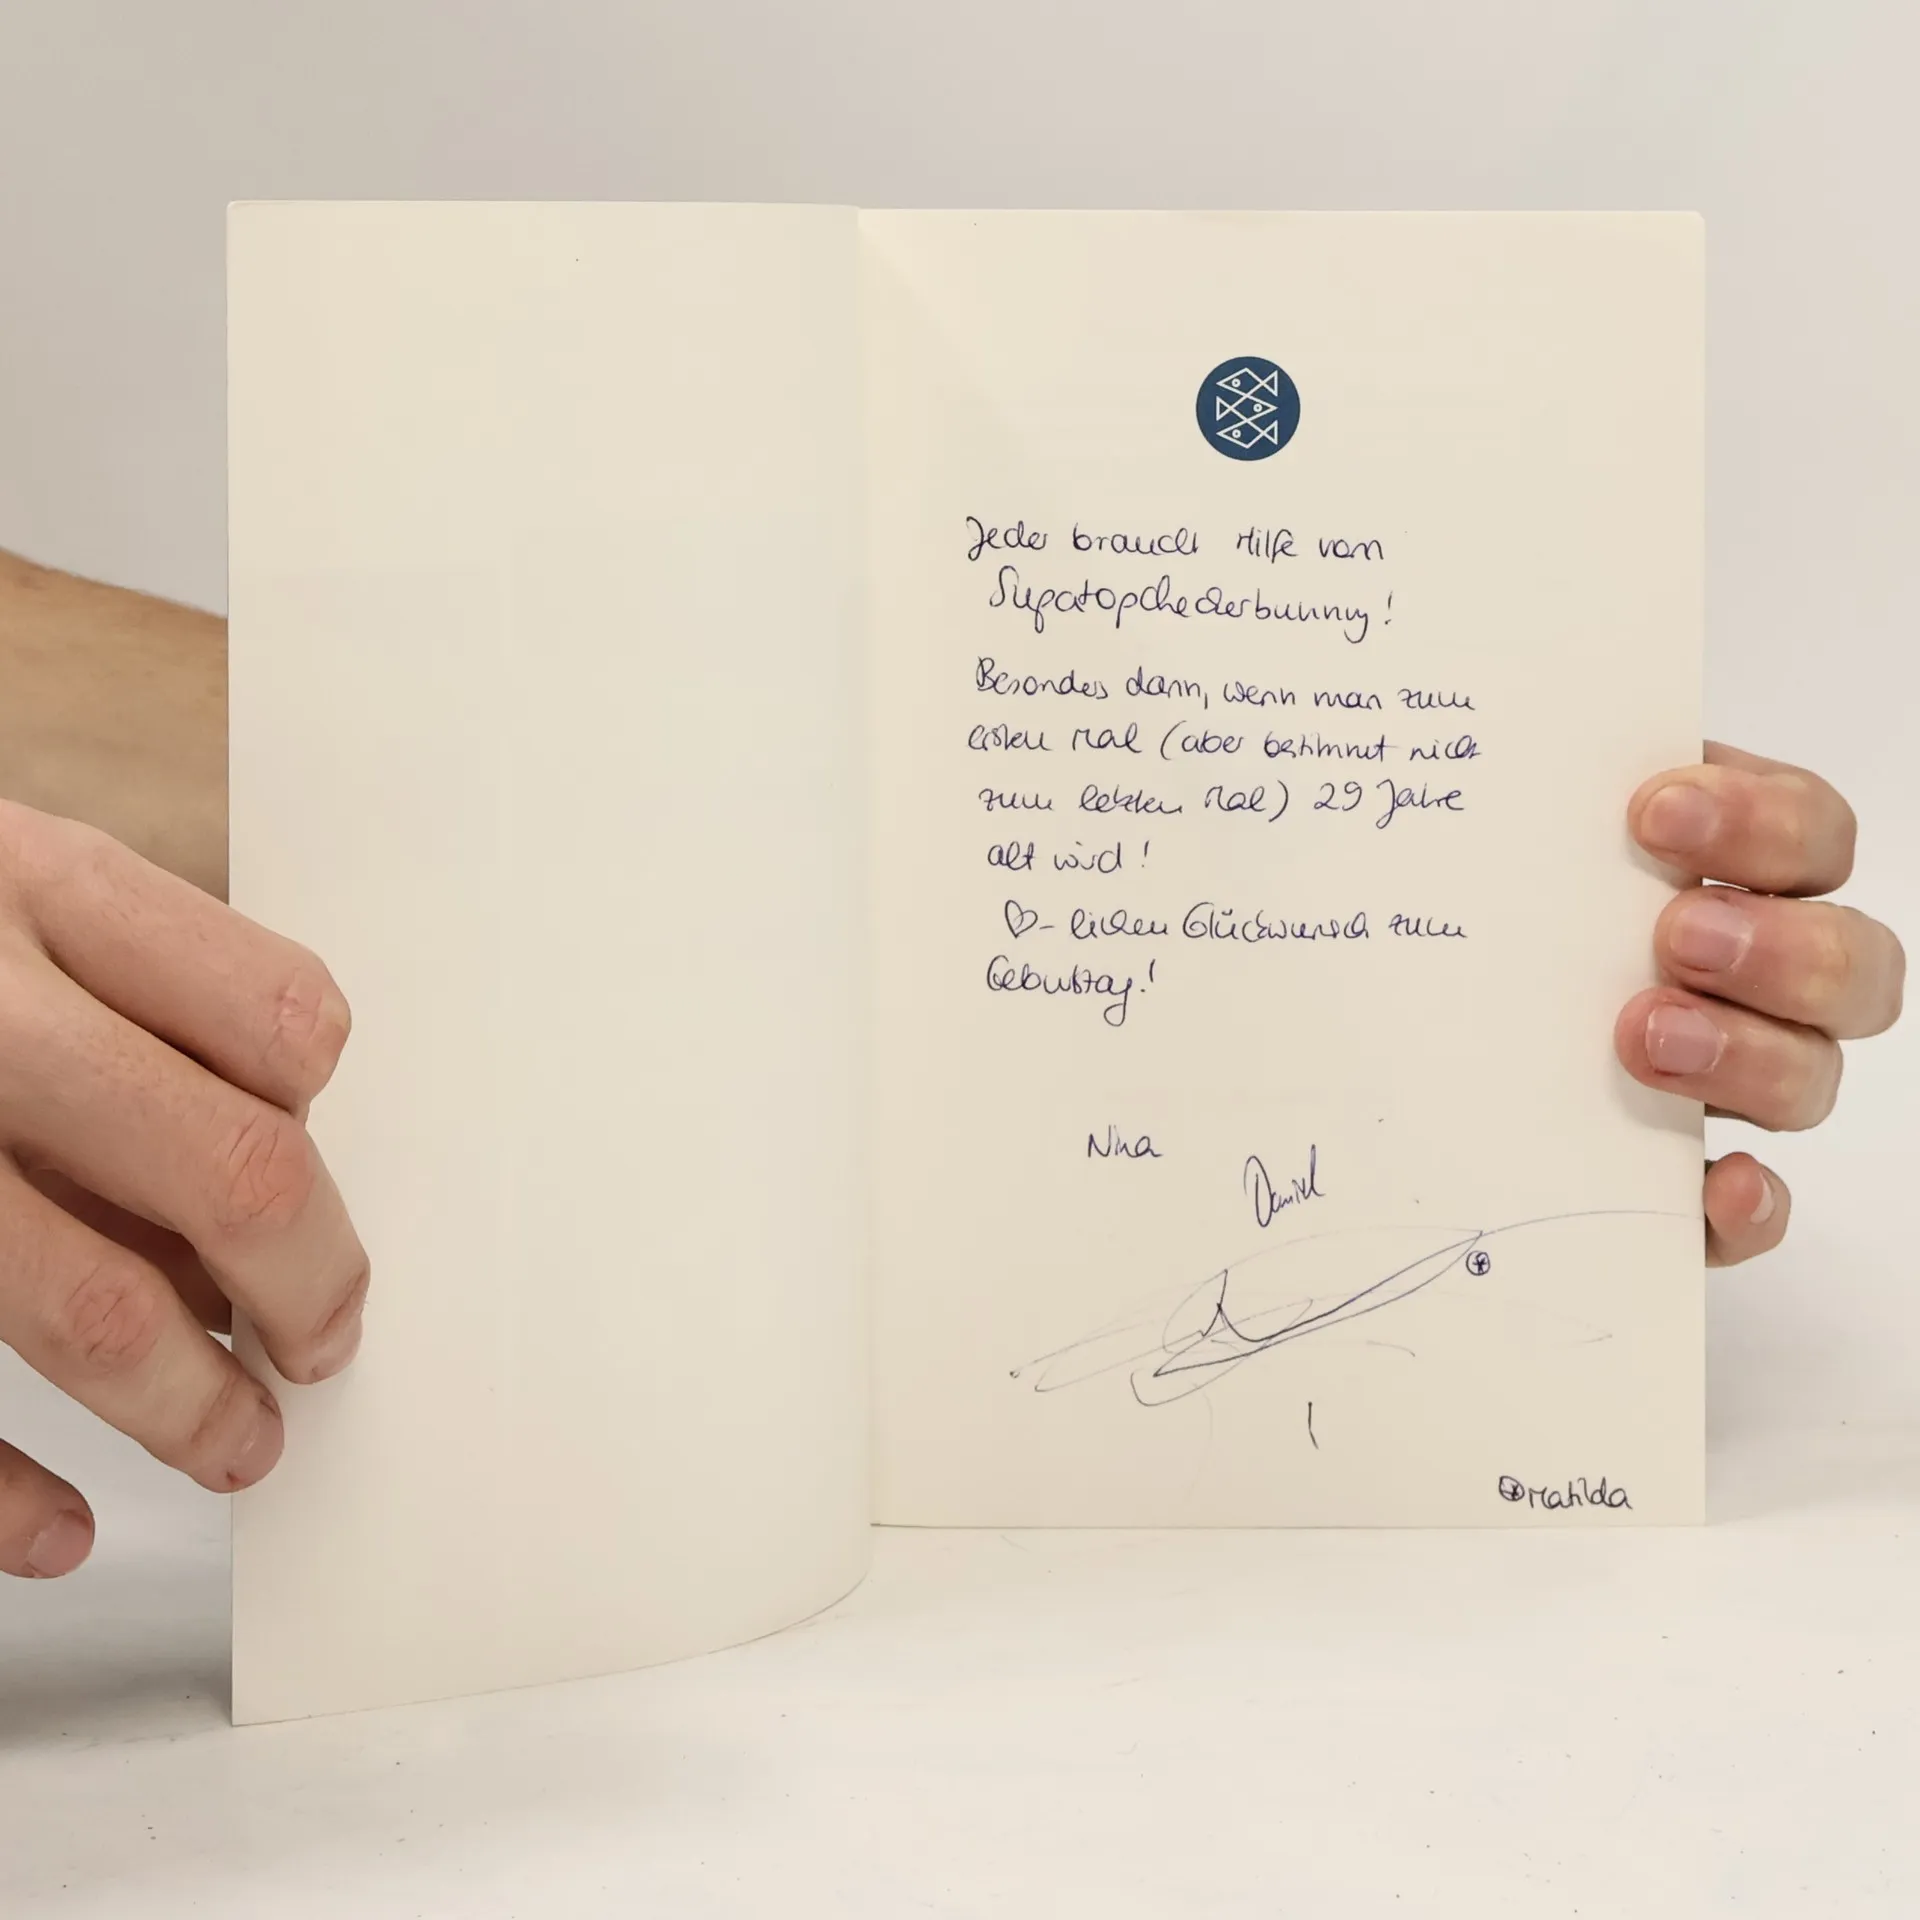 Jeder braucht Hilfe vom
Supatopcheckerbunny!
Besonders dann, wenn man zum
ersten Mal (aber bestimmt nicht
zum letzten Mal) 29 Jahre
alt wird!
♡-lichen Glückwunsch zum
Geburtstag!
Nina
Daniel
⊛
⊛Matilda